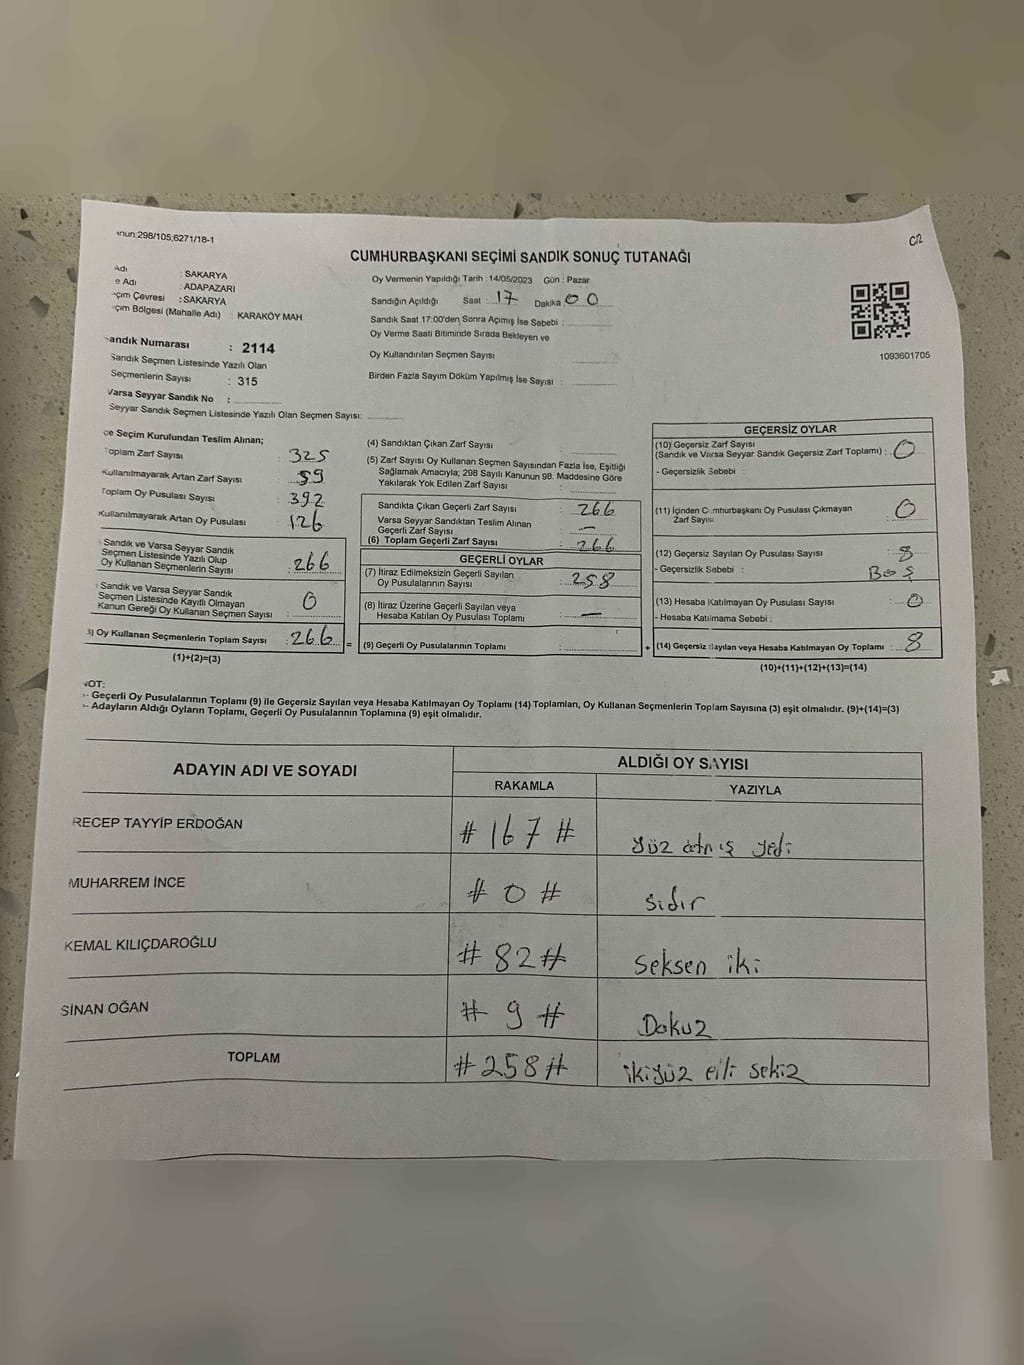 nun:298/105;6271/18-1
C2
CUMHURBAŞKANI SEÇİMİ SANDIK SONUÇ TUTANAĞI
Adı : SAKARYA
e Adı : ADAPAZARI
çim Çevresi : SAKARYA
çim Bölgesi (Mahalle Adı) : KARAKÖY MAH.
andık Numarası : 2114
Sandık Seçmen Listesinde Yazılı Olan
Seçmenlerin Sayısı : 315
Varsa Seyyar Sandık No :
Seyyar Sandık Seçmen Listesinde Yazılı Olan Seçmen Sayısı:
Oy Vermenin Yapıldığı Tarih : 14/05/2023 Gün : Pazar
Sandığın Açıldığı Saat : 17 Dakika 00
Sandık Saat 17:00'den Sonra Açımış İse Sebebi :
Oy Verme Saati Bitiminde Sırada Bekleyen ve
Oy Kullandırılan Seçmen Sayısı
Birden Fazla Sayım Döküm Yapılmış İse Sayısı :
1093601705
çe Seçim Kurulundan Teslim Alınan;
Toplam Zarf Sayısı : 325
Kullanılmayarak Artan Zarf Sayısı : 59
Toplam Oy Pusulası Sayısı : 392
Kullanılmayarak Artan Oy Pusulası : 126
Sandık ve Varsa Seyyar Sandık
Seçmen Listesinde Yazılı Olup
Oy Kullanan Seçmenlerin Sayısı : 266
Sandık ve Varsa Seyyar Sandık
Seçmen Listesinde Kayıtlı Olmayan
Kanun Gereği Oy Kullanan Seçmen Sayısı : 0
3) Oy Kullanan Seçmenlerin Toplam Sayısı : 266 =
(1)+(2)=(3)
(4) Sandıktan Çıkan Zarf Sayısı
(5) Zarf Sayısı Oy Kullanan Seçmen Sayısından Fazla İse, Eşitliği
Sağlamak Amacıyla; 298 Sayılı Kanunun 98. Maddesine Göre
Yakılarak Yok Edilen Zarf Sayısı :
Sandıkta Çıkan Geçerli Zarf Sayısı : 266
Varsa Seyyar Sandıktan Teslim Alınan
Geçerli Zarf Sayısı : —
(6) Toplam Geçerli Zarf Sayısı : 266
GEÇERLİ OYLAR
(7) İtiraz Edilmeksizin Geçerli Sayılan
Oy Pusulalarının Sayısı : 258
(8) İtiraz Üzerine Geçerli Sayılan veya
Hesaba Katılan Oy Pusulası Toplamı : —
(9) Geçerli Oy Pusulalarının Toplamı : +
GEÇERSİZ OYLAR
(10) Geçersiz Zarf Sayısı
(Sandık ve Varsa Seyyar Sandık Geçersiz Zarf Toplamı) : 0
- Geçersizlik Sebebi :
(11) İçinden Cumhurbaşkanı Oy Pusulası Çıkmayan
Zarf Sayısı : 0
(12) Geçersiz Sayılan Oy Pusulası Sayısı : 8
- Geçersizlik Sebebi : BOŞ
(13) Hesaba Katılmayan Oy Pusulası Sayısı : 0
- Hesaba Katılmama Sebebi :
(14) Geçersiz Sayılan veya Hesaba Katılmayan Oy Toplamı : 8
(10)+(11)+(12)+(13)=(14)
NOT:
- Geçerli Oy Pusulalarının Toplamı (9) ile Geçersiz Sayılan veya Hesaba Katılmayan Oy Toplamı (14) Toplamları, Oy Kullanan Seçmenlerin Toplam Sayısına (3) eşit olmalıdır. (9)+(14)=(3)
- Adayların Aldığı Oyların Toplamı, Geçerli Oy Pusulalarının Toplamına (9) eşit olmalıdır.
ADAYIN ADI VE SOYADI
ALDIĞI OY SAYISI
RAKAMLA YAZIYLA
RECEP TAYYİP ERDOĞAN # 167 # Yüz atmış yedi
MUHARREM İNCE # 0 # Sıdır
KEMAL KILIÇDAROĞLU # 82 # Seksen iki
SİNAN OĞAN # 9 # Dokuz
TOPLAM # 258 # ikiyüz elli sekiz